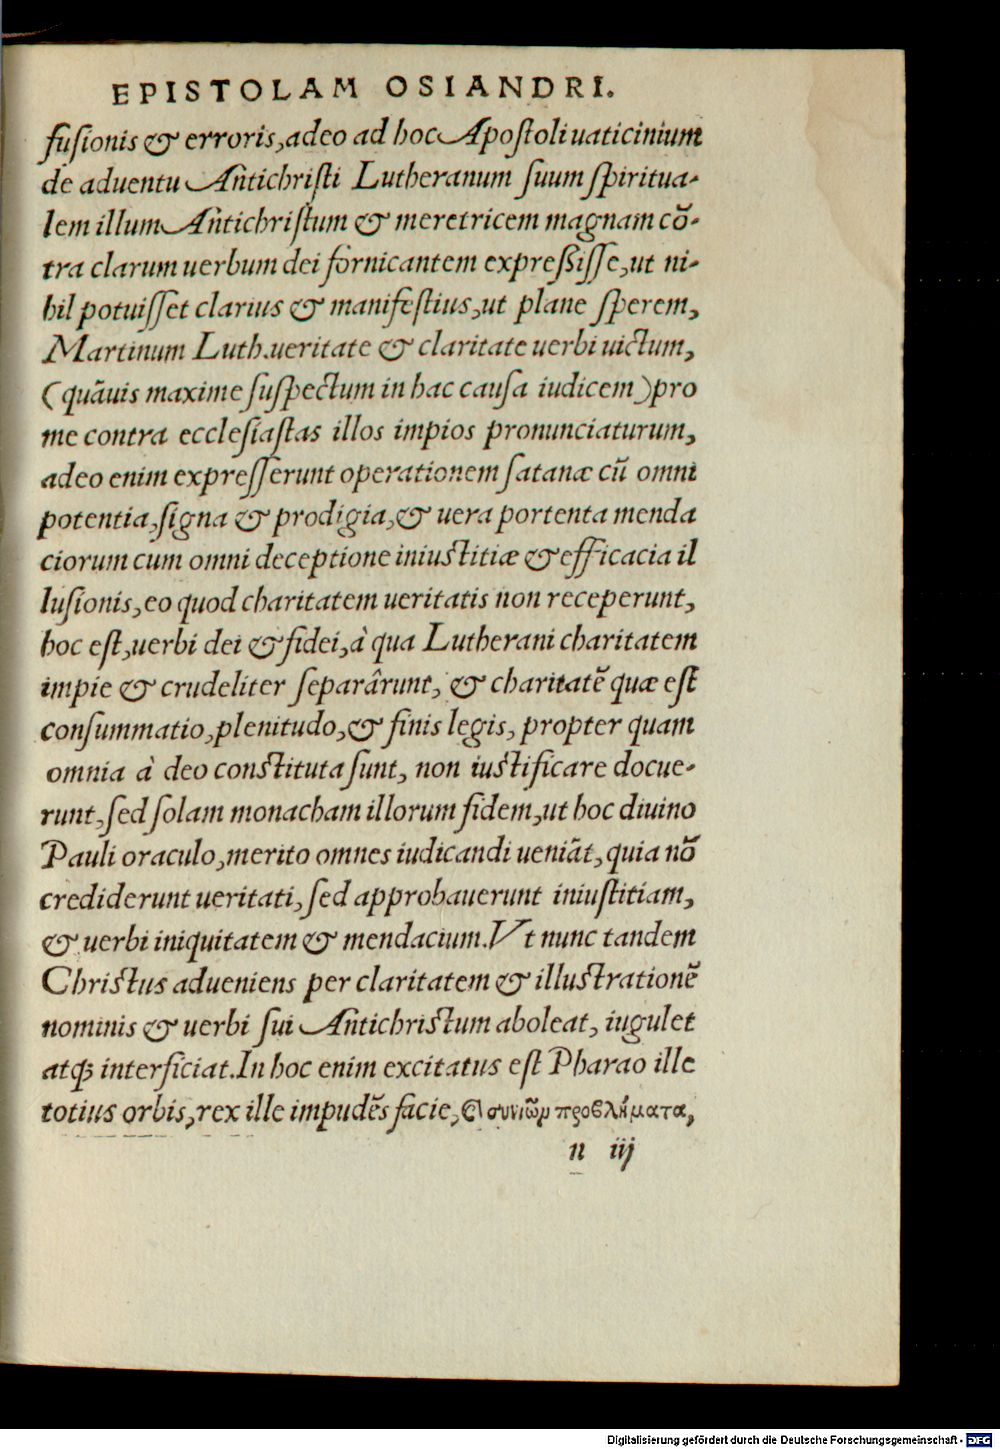 EPISTOLAM OSIANDRI.
fusionis & erroris, adeo ad hoc Apostoli uaticinium
de aduentu Antichristi Lutheranum suum spiritua-
lem illum Antichristum & meretricem magnam cō-
tra clarum uerbum dei fornicantem expreßisse, ut ni-
hil potuisset clarius & manifestius, ut plane sperem,
Martinum Luth. ueritate & claritate uerbi uictum,
(quāuis maxime suspectum in hac causa iudicem) pro
me contra ecclesiastas illos impios pronunciaturum,
adeo enim expresserunt operationem satanæ cū omni
potentia, signa & prodigia, & uera portenta menda
ciorum cum omni deceptione iniustitiæ & efficacia il
lusionis, eo quod charitatem ueritatis non receperunt,
hoc est, uerbi dei & fidei, à qua Lutherani charitatem
impie & crudeliter separârunt, & charitatē quæ est
consummatio, plenitudo, & finis legis, propter quam
omnia à deo constituta sunt, non iustificare docue-
runt, sed solam monacham illorum fidem, ut hoc diuino
Pauli oraculo, merito omnes iudicandi ueniāt, quia nō
crediderunt ueritati, sed approbauerunt iniustitiam,
& uerbi iniquitatem & mendacium. Vt nunc tandem
Christus adueniens per claritatem & illustrationē
nominis & uerbi sui Antichristum aboleat, iugulet
atq; interficiat. In hoc enim excitatus est Pharao ille
totius orbis, rex ille impudēs facie, ὁ συνιῶν προβλήματα,
n iij
Digitalisierung gefördert durch die Deutsche Forschungsgemeinschaft - DFG